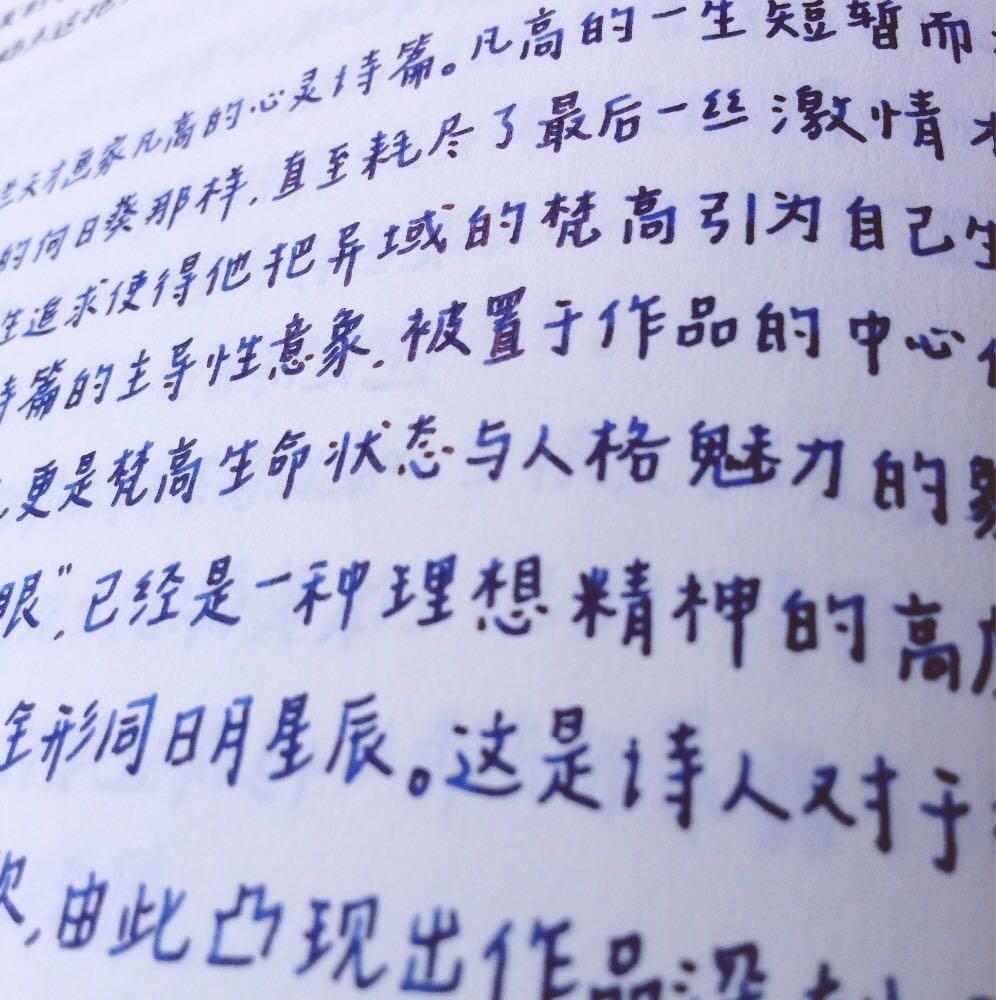 天才画家凡高的心灵诗篇。凡高的一生短暂而
的向日葵那样,直至耗尽了最后一丝激情
追求使得他把异域的梵高引为自己生
篇的主导性意象,被置于作品的中心
更是梵高生命状态与人格魅力的
眼",已经是一种理想精神的高
形同日月星辰。这是诗人对于
,由此凸现出作品深